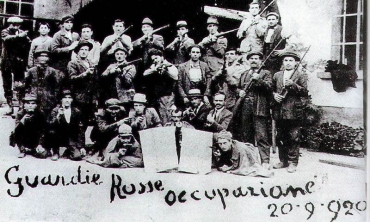 Guardie Rosse occupazione
20-9-920